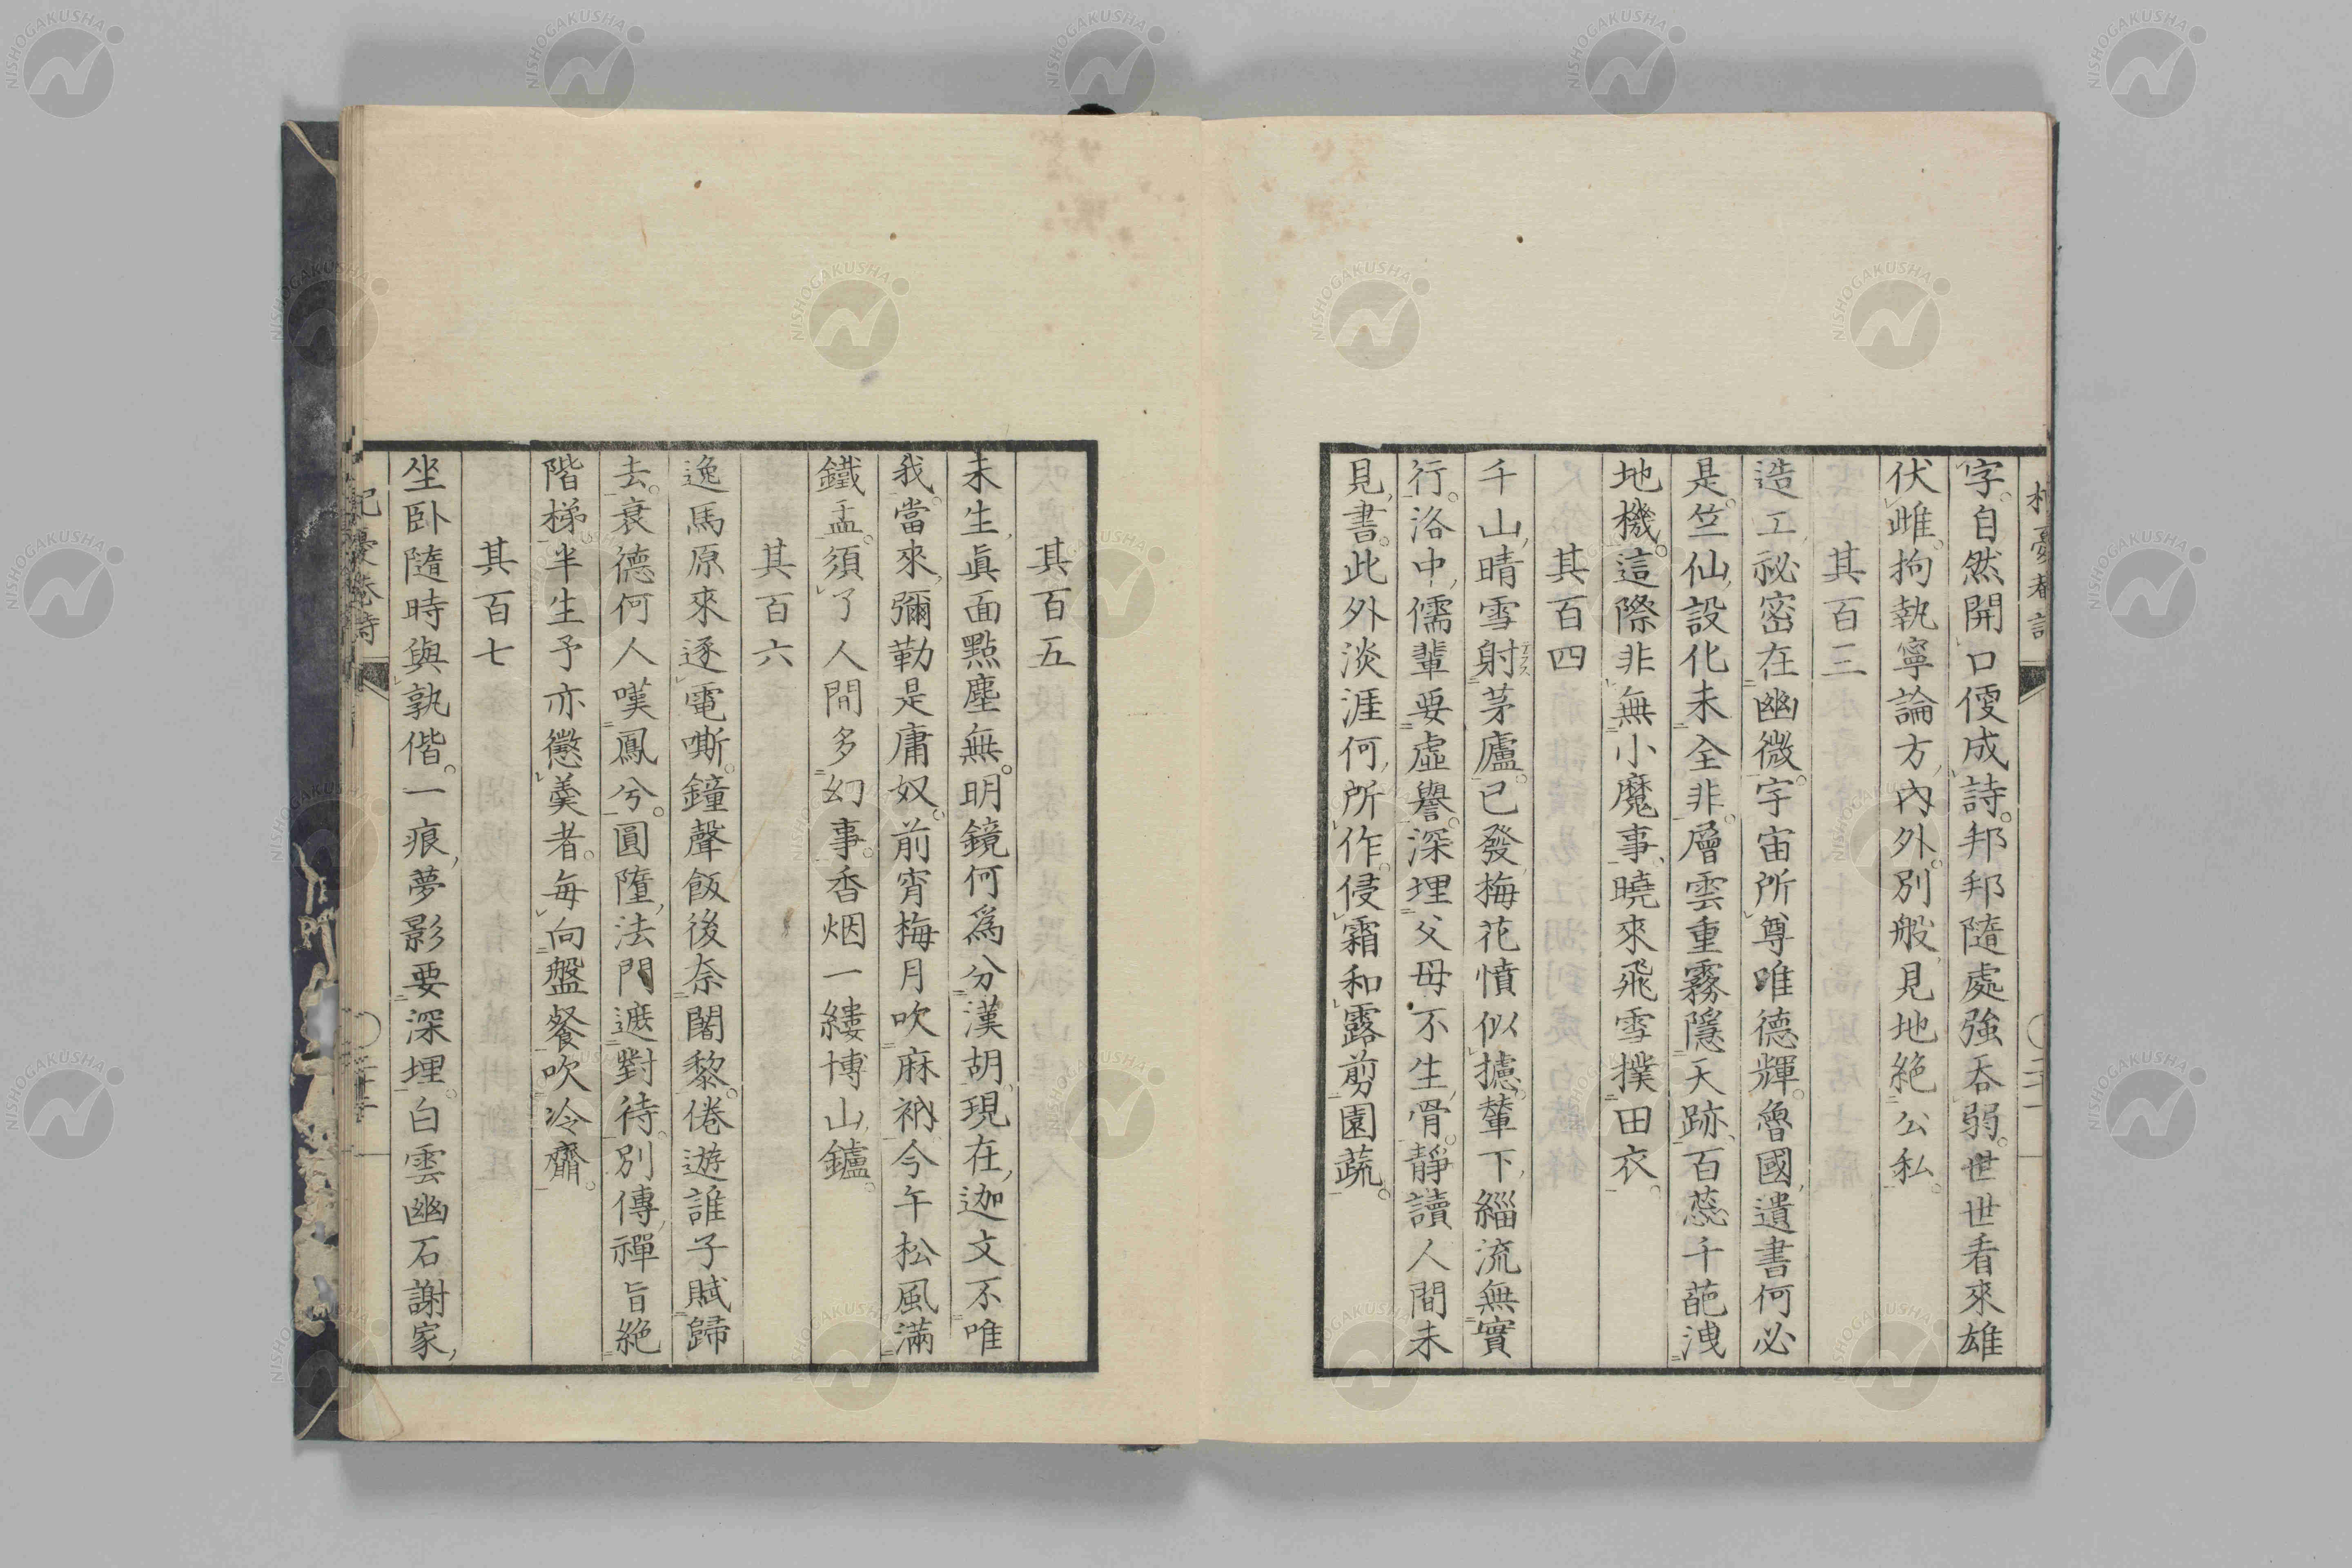 字。自然開口便成詩。邦邦隨處強吞弱。世世看來雄
伏雌。拘執寧論方內外。別般見地絕公私。
其百三
造工祕密在幽微。宇宙所尊唯德輝。魯國遺書何必
是。竺仙設化未全非。層雲重霧隱天跡、百蕊千葩洩
地機。這際非無小魔事、曉來飛雪撲田衣。
其百四
千山晴雪射茅廬。已發梅花憤似攄。輦下緇流無實
行。洛中儒輩要虛譽。深埋父母不生骨。靜讀人間未
見書。此外淡涯何所作。侵霜和露剪園蔬。
其百五
未生眞面點塵無。明鏡何爲分漢胡。現在迦文不唯
我。當來彌勒是庸奴。前宵梅月吹麻衲今午松風滿
鐵盂。須了人間多幻事。香烟一縷博山鑪。
其百六
逸馬原來逐電嘶。鐘聲飯後奈闍黎。倦遊誰子賦歸
去。衰德何人嘆鳳兮。圓墮法門遮對待。別傳禪旨絕
階梯。半生予亦懲羹者。每向盤餐吹冷齏。
其百七
坐卧隨時與孰偕。一痕夢影要深埋。白雲幽石謝家
NISHOGAKUSHA